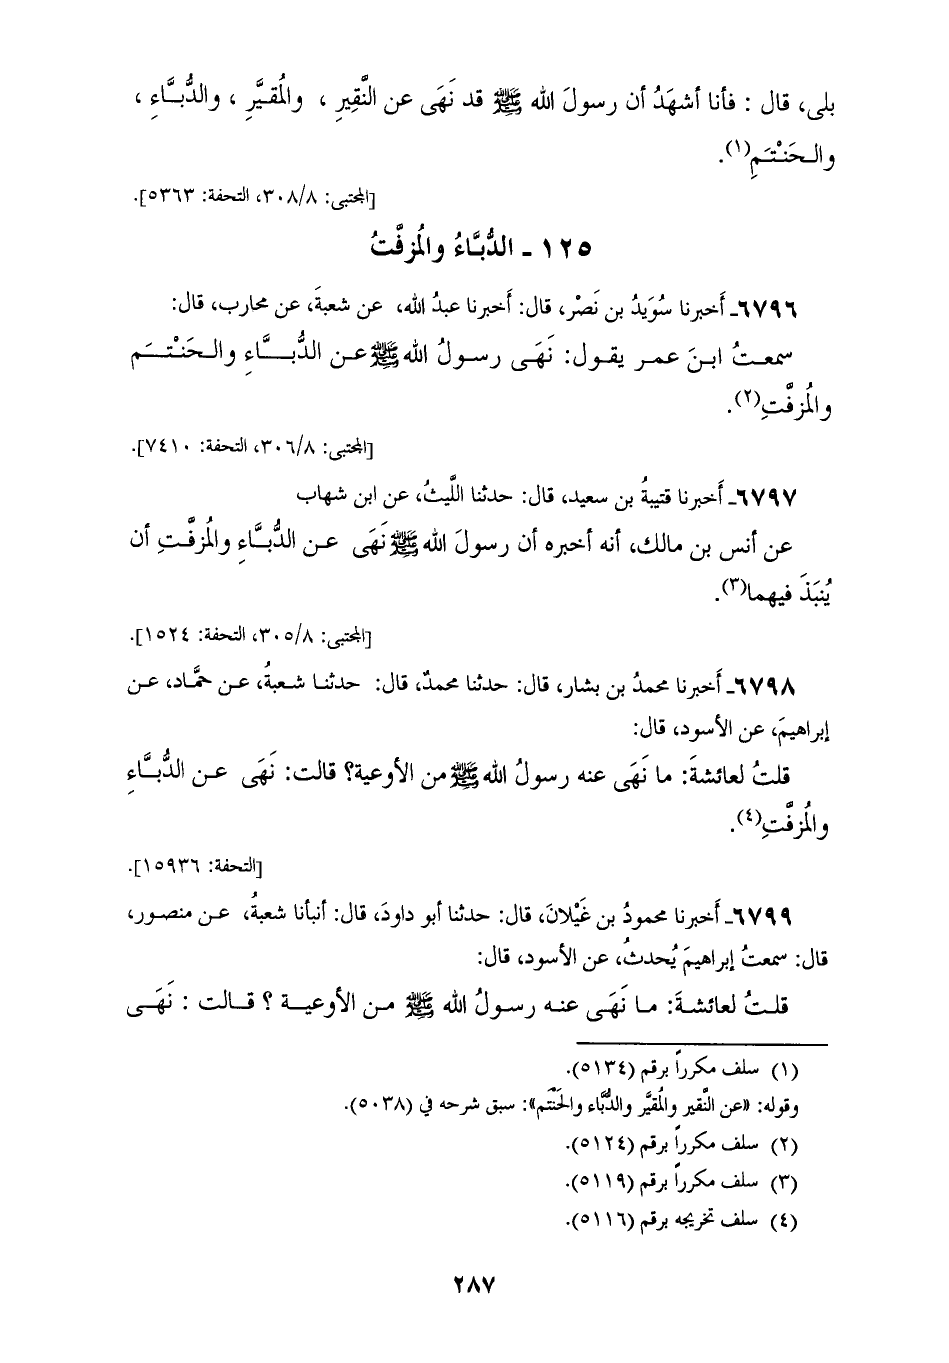 بلى، قال : فأنا أشهَدُ أن رسولَ الله ﷺ قد نَهَى عن النَّقِيرِ ، والمُقيَّرِ ، والدُّبَّاءِ ،
والحَنْتَمِ(١).
[المجتبى: ٣٠٨/٨، التحفة: ٥٣٦٣].
١٢٥ ـ الدُّبَّاءُ والمُزفَّتُ
٦٧٩٦ـ أَخبرنا سُوَيدُ بن نَصْر، قال: أَخبرنا عبدُ الله، عن شعبةَ، عن محارب، قال:
سمعتُ ابنَ عمر يقول: نَهَى رسولُ الله ﷺ عن الدُّبَّاءِ والحَنْتَمِ
والمُزفَّتِ(٢).
[المجتبى: ٣٠٦/٨، التحفة: ٧٤١٠].
٦٧٩٧ـ أَخبرنا قتيبةُ بن سعيد، قال: حدثنا اللَّيثُ، عن ابن شهاب
عن أنس بن مالك، أنه أخبره أن رسولَ الله ﷺ نَهَى عن الدُّبَّاءِ والمُزفَّتِ أن
يُنبَذَ فيهما(٣).
[المجتبى: ٣٠٥/٨، التحفة: ١٥٢٤].
٦٧٩٨ـ أَخبرنا محمدُ بن بشار، قال: حدثنا محمدٌ، قال: حدثنا شعبةُ، عن حمَّاد، عن
إبراهيمَ، عن الأسود، قال:
قلتُ لعائشةَ: ما نَهَى عنه رسولُ الله ﷺ من الأوعية؟ قالت: نَهَى عن الدُّبَّاءِ
والمُزفَّتِ(٤).
[التحفة: ١٥٩٣٦].
٦٧٩٩ـ أَخبرنا محمودُ بن غَيْلانَ، قال: حدثنا أبو داودَ، قال: أنبأنا شعبةُ، عن منصور،
قال: سمعتُ إبراهيمَ يُحدثُ، عن الأسود، قال:
قلتُ لعائشةَ: ما نَهَى عنه رسولُ الله ﷺ من الأوعية ؟ قالت : نَهَى
(١) سلف مكرراً برقم (٥١٣٤).
وقوله: «عن النَّقير والمُقيَّر والدُّبَّاء والحَنْتَم»: سبق شرحه في (٥٠٣٨).
(٢) سلف مكرراً برقم (٥١٢٤).
(٣) سلف مكرراً برقم (٥١١٩).
(٤) سلف تخريجه برقم (٥١١٦).
٢٨٧